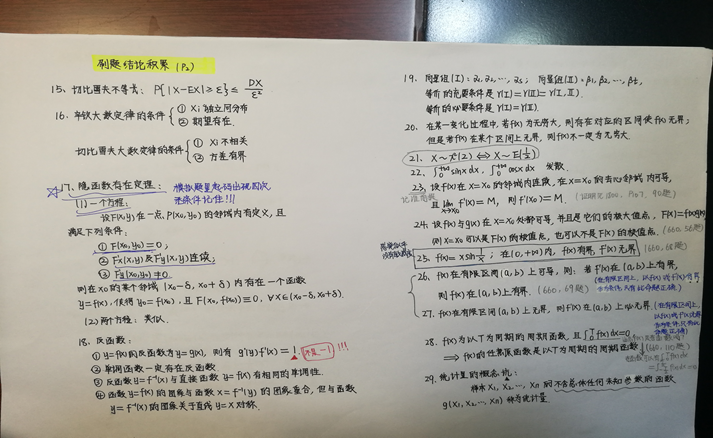 刷题结论积累 (P₂)
15、切比雪夫不等式: P{|X-EX|≥ε}≤ DX/ε²
16、辛钦大数定律的条件 { ① Xi 独立同分布
② 期望存在.
切比雪夫大数定律的条件 { ① Xi 不相关
② 方差有界
17、隐函数存在定理:
(1) 一个方程:
设F(x,y)在一点P(x₀,y₀)的邻域内有定义,且
满足下列条件:
① F(x₀,y₀)=0;
② F'x(x,y)及F'y(x,y)连续;
③ F'y(x₀,y₀)≠0
则在x₀的某个邻域(x₀-δ,x₀+δ)内存在一个函数
y=f(x),使得y₀=f(x₀),且F(x,f(x))≡0,∀x∈(x₀-δ,x₀+δ).
(2) 两个方程: 类似.
18、反函数:
① y=f(x)的反函数为y=g(x),则有 g'(y)f'(x)=1. 不是-1 !!!
② 单调函数一定存在反函数.
③ 反函数y=f⁻¹(x)与直接函数y=f(x)有相同的单调性.
④ 函数y=f(x)的图像与函数x=f⁻¹(y)的图像重合,但与函数
y=f⁻¹(x)的图像关于直线y=x对称.
19、向量组(I): α₁,α₂,…,αs; 向量组(II)=β₁,β₂,…,βt,
等价的充要条件是 r(I)=r(II)=r(I,II).
等价的必要条件是 r(I)=r(II).
20、在某一变化过程中,若f(x)为无穷大,则存在对应的区间使f(x)无界;
但是若f(x)在某个区间上无界,则f(x)不一定为无穷大
21、X~χ²(2)⇔X~E(1/2)
22、∫₀^{+∞} sinx dx, ∫₀^{+∞} cosx dx 发散.
23、设f(x)在x=x₀的邻域内连续,在x=x₀的去心邻域内可导,
且 lim x→x₀ f'(x)=M, 则f'(x₀)=M.
24、设f(x)与g(x)在x=x₀处都可导,并且是它们的极大值点, F(x)=f(x)g(x)
则x=x₀可以是F(x)的极值点,也可以不是F(x)的极值点. (660,56题)
25、
26、f(x)在有限区间(a,b)上可导,则: 若f'(x)在(a,b)上有界,
则f(x)在(a,b)上有界. (660,69题)
27、f(x)在有限区间(a,b)上无界,则f'(x)在(a,b)上必无界.
28、f(x)为以T为周期的周期函数,且∫₀ᵀf(x)dx=0
⇒ f(x)的任意原函数是以T为周期的周期函数
29、统计量的概念:
样本X₁,X₂,…,Xn的不含总体任何未知参数的函数
g(X₁,X₂,…,Xn)称为统计量